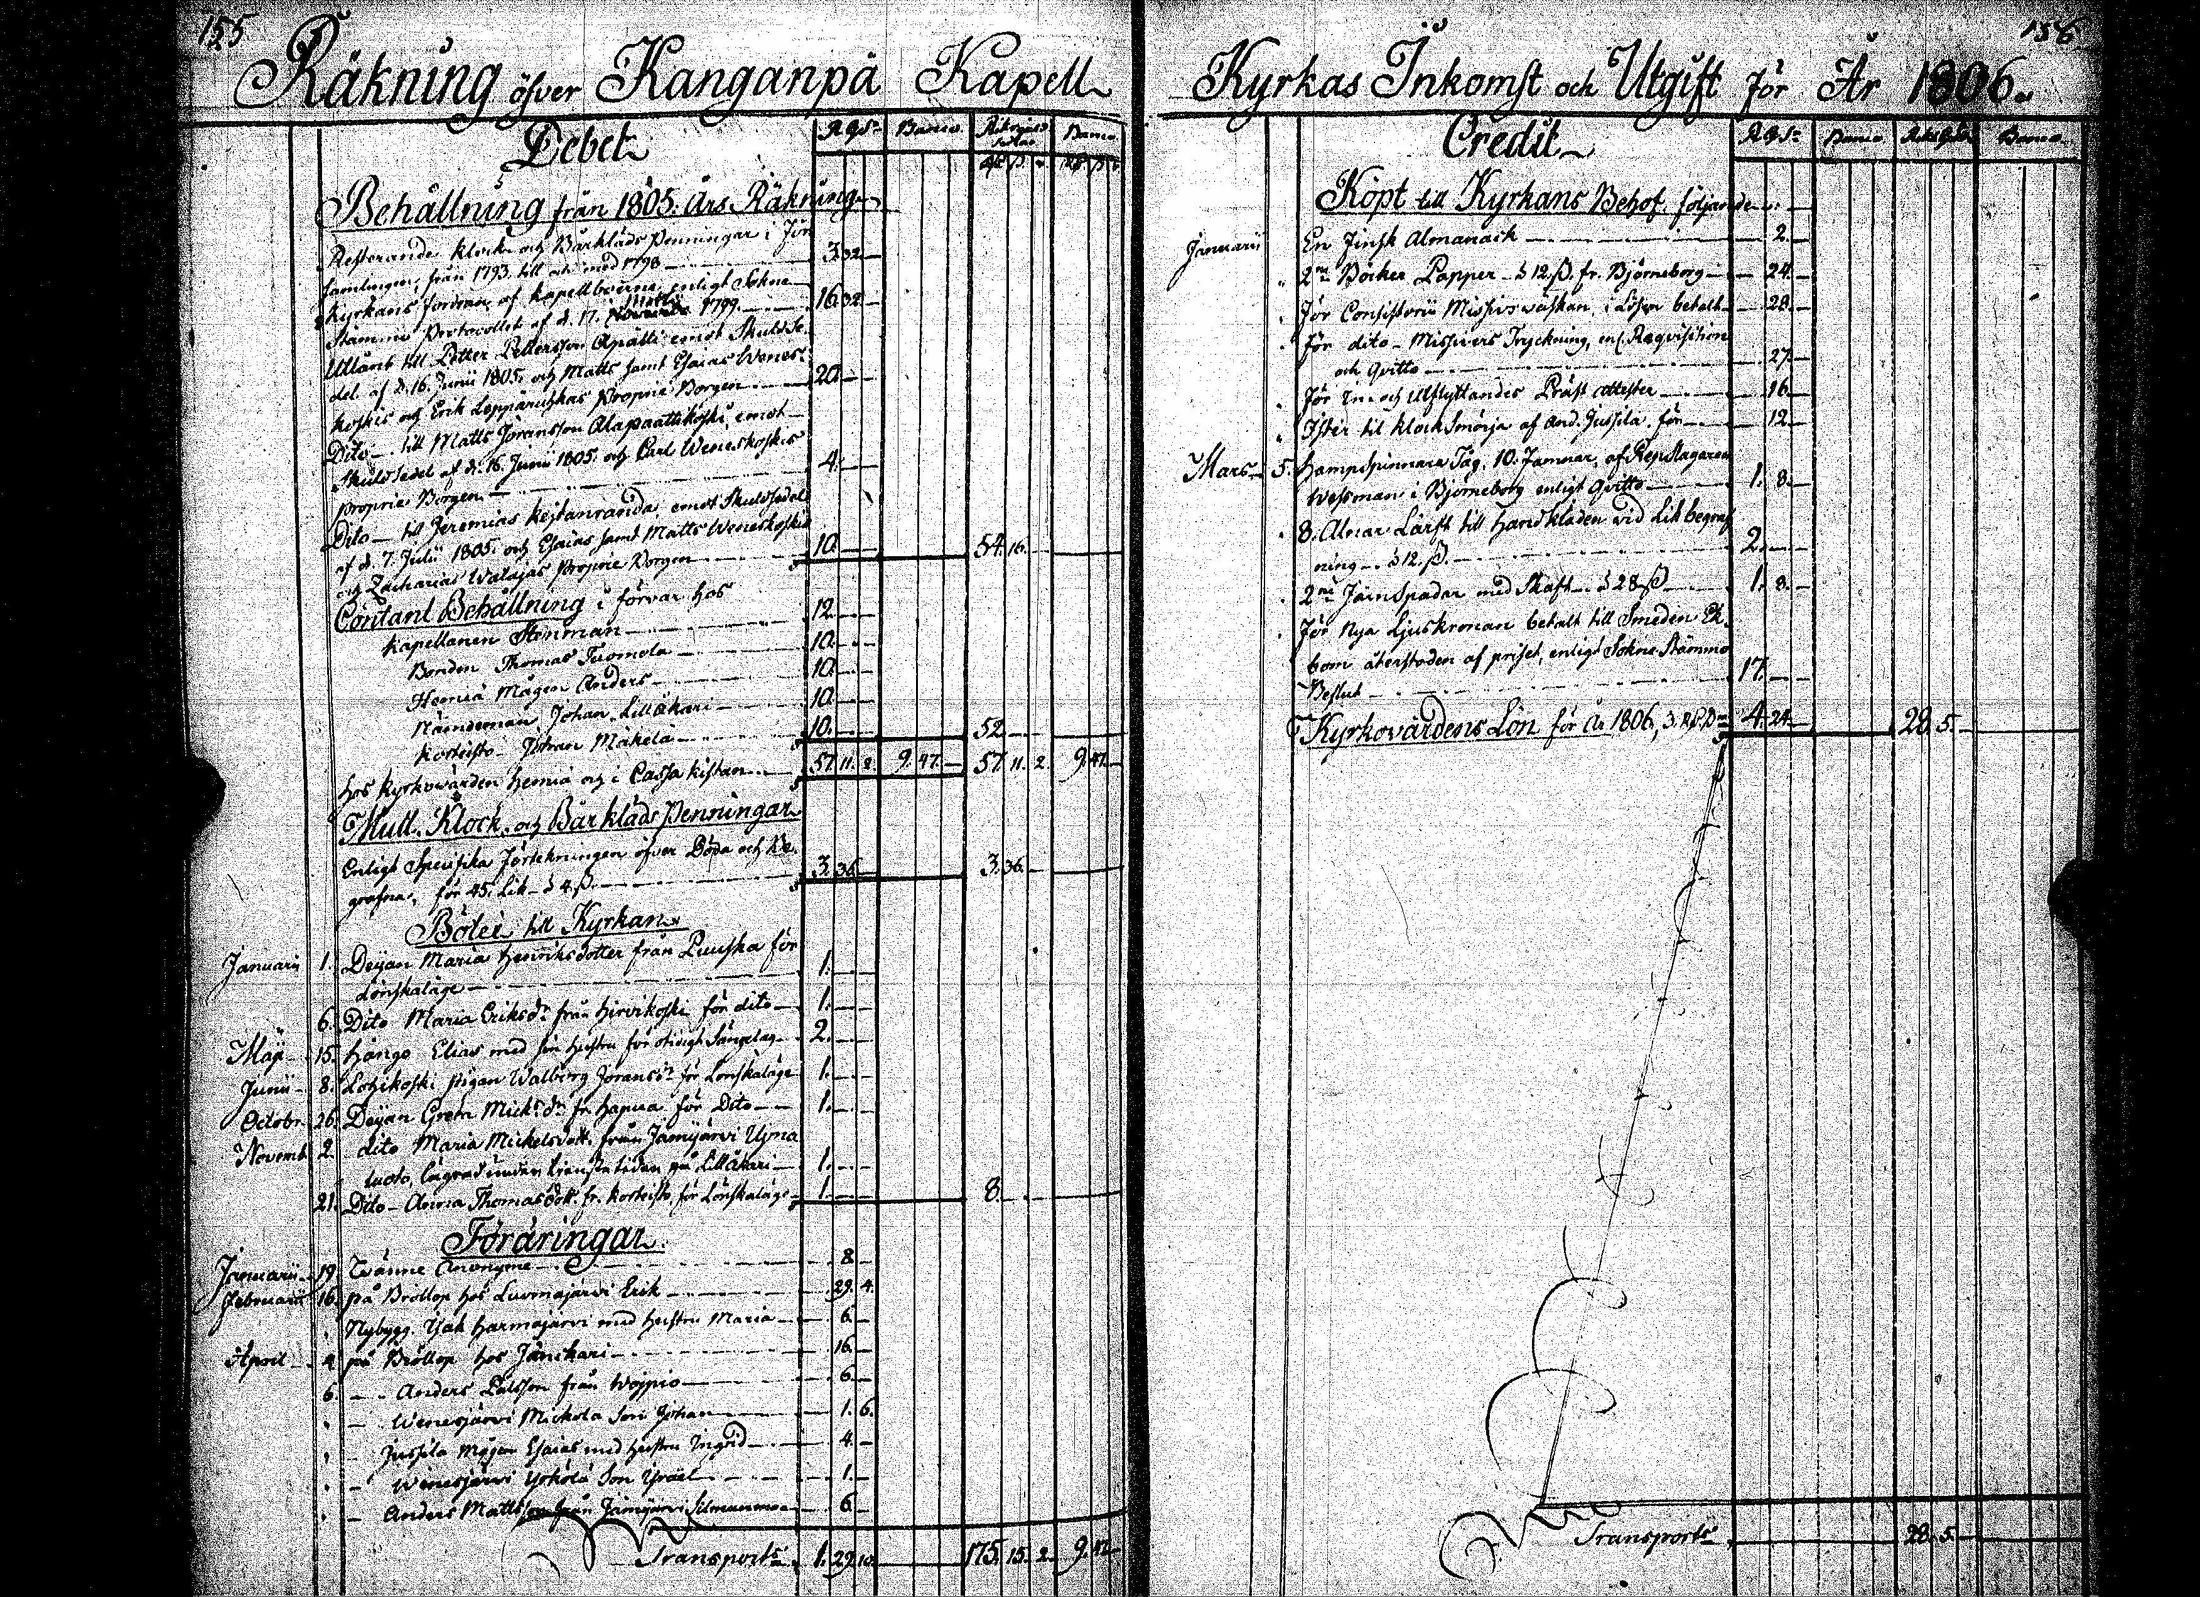 155
Räkning öfver Kanganpä Kapell
Debet
R.Gs. Banco Riksgäld Banco
Behållning från 1805. års Räkning
Resterande Klock- och Bårkläds Penningar i För
samlingen, från 1793. till och med 1798 3. 32. —
Kyrkans fordran af Kapellboerne, enligt Sokne
Stämmo Protocollet af d. 17. 1799. 16. 32. —
Utlånt till Petter Pettersson Apätti emot Skuldse
del af d. 16. Junii 1805. och Matts samt Esaias Wenes-
koskis och Erik Leppäruhkas Proprie Borgen 20. — —
Dito — till Matts Jöransson Alapaattikoski, emot
Skuldsedel af d. 16. Junii 1805. och Carl Weneskoskis
proprie Borgen 4. — —
Dito — till Jeremias Keitanranda emot Skuldsedel
af d. 7. Julii 1805. och Esaias samt Matts Weneskoskis
och Zacharias Walajas proprie Borgen 10. — — 54. 16. —
Contant Behållning i förvar hos
Kapellanen Stenman 12. — —
Bonden Thomas Tuomola 10. — —
Hemiä Mågen Anders 10. — —
Nämndeman Johan Lilläkari 10. — —
Korteisto Johan Mäkelä 10. — — 52. — —
Hos Kyrkovärden Hemiä och i Cassa kistan 57. 11. 2. 9. 47. — 57. 11. 2. 9. 47. —
Mull- Klock- och Bårkläds Penningar
Enligt Specifika Förtekningen öfver Döda och Be-
grafna, för 45. Lik - à 4. ß. 3. 36. — 3. 36. —
Böter till Kyrkan
Januarii 1. Deijan Maria Henriksdotter från Puuska för
Lönskaläge 1. — —
6. Dito Maria Eriksdr. från Hirvikoski för dito 1. — —
Maji 15. Hångo Elias med sin Hustru för otidigt Sängelag 2. — —
Junii 8. Lohikoski pigan Walborg Jöransdr. för Lönskaläge 1. — —
Octobr. 26. Deijan Greta Micks dr. fr. Hapua för Dito 1. — —
Novemb. 2. dito Maria Mickelsdott. från Jämijärvi
lägrad under tiden på Lilläkari 1. — —
21. Dito — Anna Thomasdott. fr. Korteisto, för Lönskaläge 1. — — 8. — —
Föräringar
Januarii 19. Twänne Anonyme 8. —
Februarii 16. på Bröllop hos Luomajärvi Erik 29. 4.
Nybygg. Isak Harmajärvi med Hustru Maria 6. —
April 4. på Bröllop hos Jänikari 16. —
6. — Anders Pålsson från Wojpio 6. —
— Wenesjärvi Mickola Son Johan 1. 6.
— Jussila Mågen Esaias med Hustru Ingrid 4. —
— Wenesjärvi Yrkölä Son Ysräel 1. —
— Anders Mattsson från Jämijärvi 6. —
Transport 1. 29. 10. 175. 15. 2. 9. 47. —
156
Kyrkas Inkomst och Utgift för År 1806.
Credit
R.Gs. Banco Riksgäld Banco
Köpt till Kyrkans Behof följande
Januarii En Finsk Almanack 2. —
2ne Böcker Papper - à 12. ß. fr. Björneborg 24. —
För Consistorii Missiv wäskan, i Lösen betalt 28. —
för dito - Missivers Tryckning, enl. Reqvisition
och Qvitto 27. —
För In- och Utflyttandes Präst attester 16. —
Ister til KlockSmörja af And. Jussila för 12. —
Mars 5. Hampspinnare Tåg. 10. Famnar, af Repslagaren
Wessman i Björneborg enligt Qvitto 1. 8. —
8. Alnar Lärft till Handkläden vid Lik begraf
ning - à 12. ß. 2. — —
2ne Järnspadar med Skaft - à 28 ß 1. 8. —
För Nya Ljuskronan betalt till Smeden Ek-
bom återstoden af priset, enligt Sokne Stämmo
Beslut 17. — —
Kyrkovärdens Lön för År 1806, 4. 24. — 28. 5. —
Transport 28. 5. —